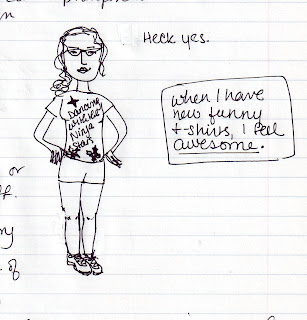 Heck yes.
Dancing
with the
Ninja
Star
when I have
new funny
t-shirts, I feel
awesome.
or
of